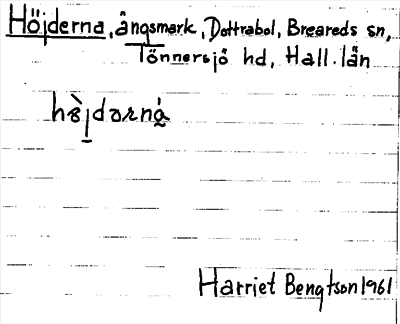 Höjderna, ängsmark, Dottrabol, Breareds sn,
Tönnersjö hd, Hall. län
Harriet Bengtson 1961